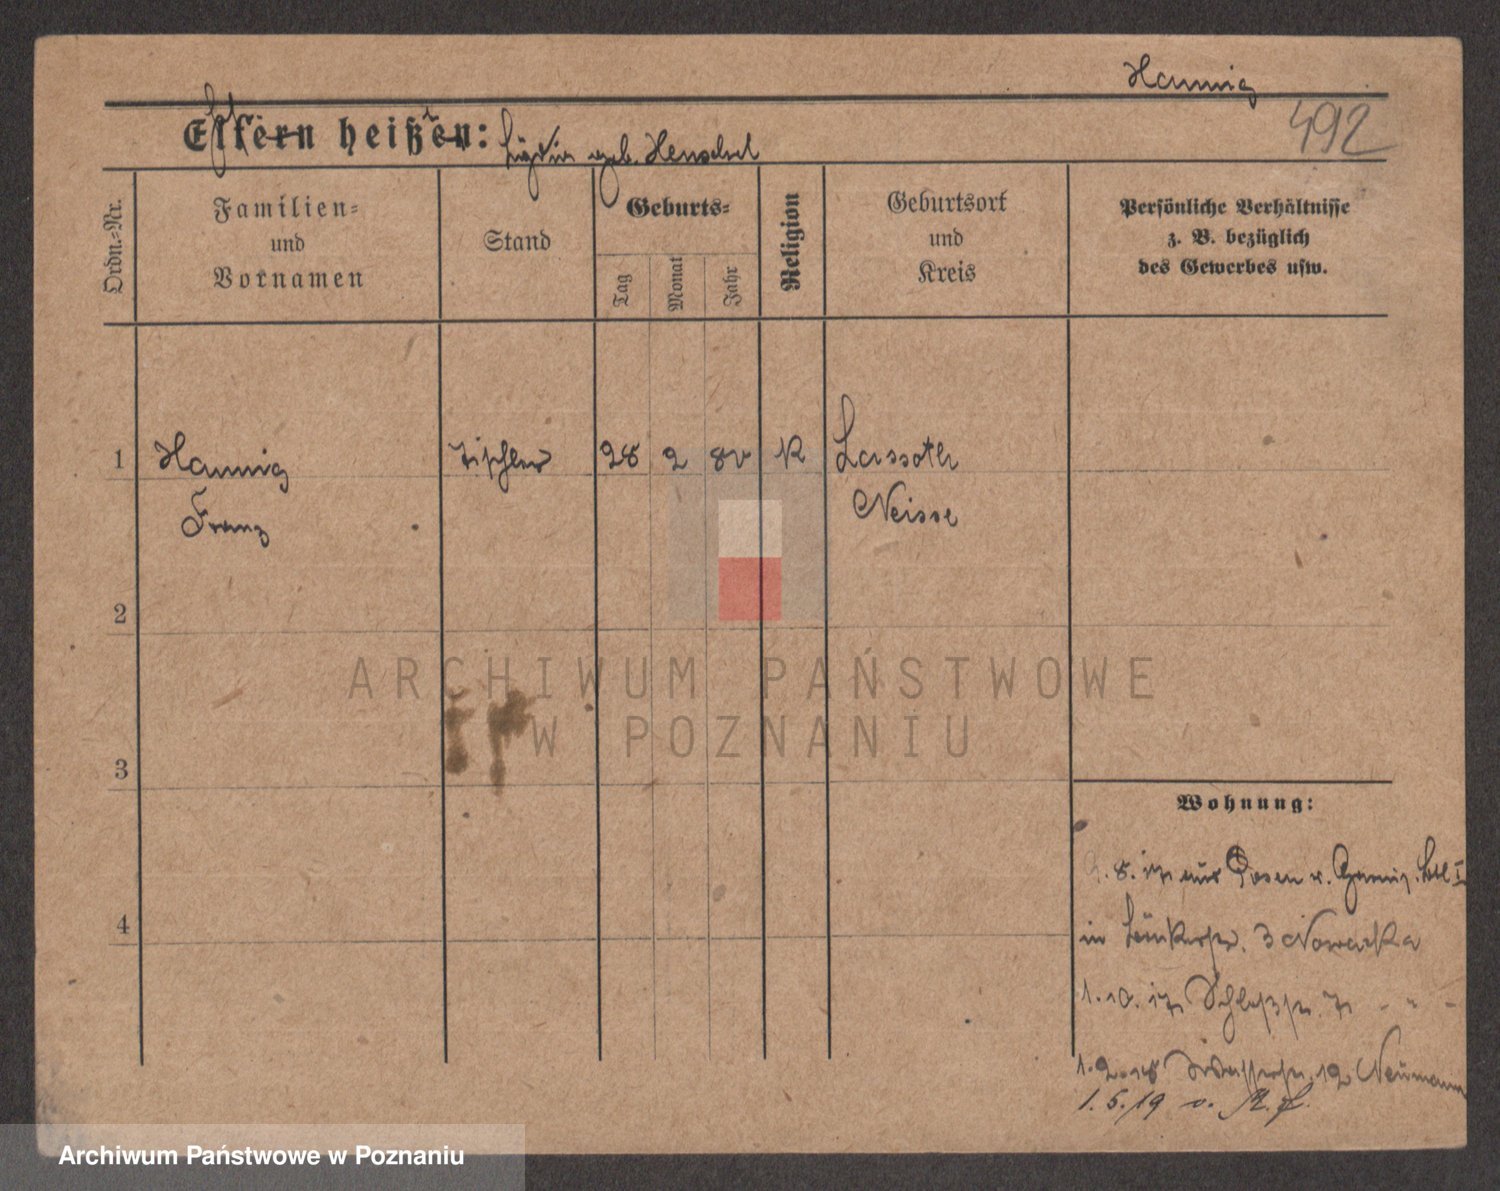 Hannig
492
Eltern heißen: geb. Henschel
Ordn.=Nr.
Familien=
und
Vornamen
Stand
Geburts=
Tag
Monat
Jahr
Religion
Geburtsort
und
Kreis
Persönliche Verhältnisse
z. B. bezüglich
des Gewerbes usw.
1 Hannig Tischler 28 2 80 K Lassoth
Franz Neisse
2
3
4
ARCHIWUM PAŃSTWOWE
W POZNANIU
Wohnung:
8. 17 aus Posen
in 3 Nowacka
1.10. 17 Schloßstr. 7 - " -
1.2.18 Wasserstr. 12 Neumann
1.5.19 v.
Archiwum Państwowe w Poznaniu